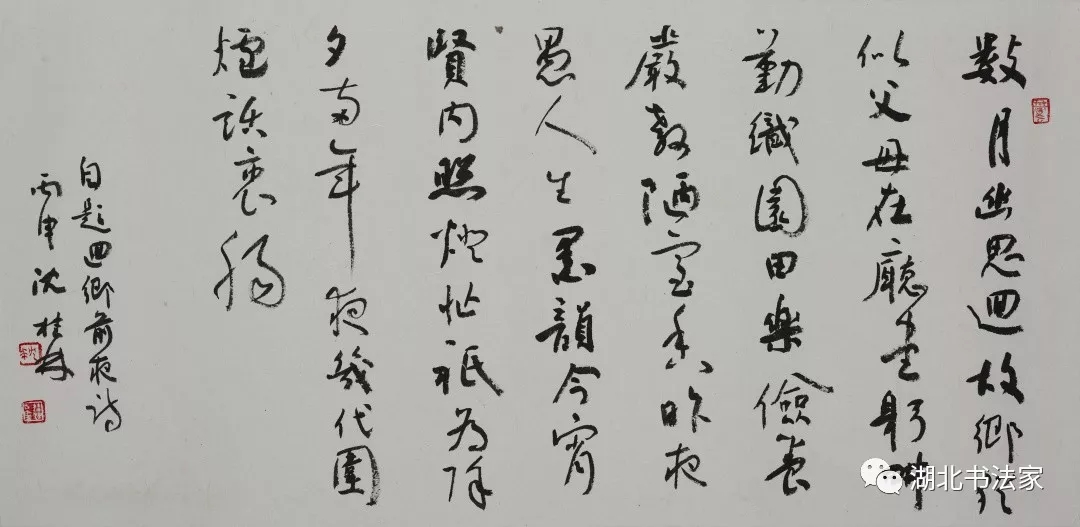 數月幽思迴故鄉
似父母在廳堂躬耕
勤織園田樂儉養
嚴教陋室香昨夜
愚人生墨韻今宵
賢內照燈忙祇為除
夕年夜幾代圍
爐話衷腸
自題迴鄉前夜詩
丙申沈桂林
湖北书法家